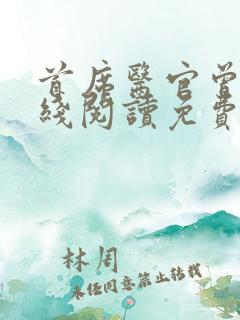 首席醫官曾
綫閱讀免費
林周
未经同意禁止转载